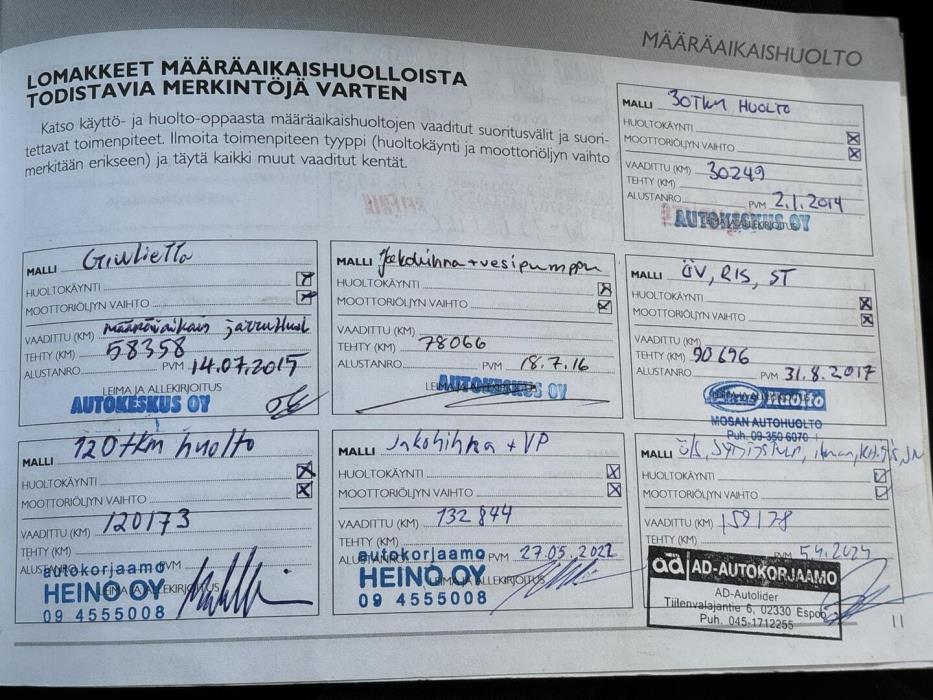 MÄÄRÄAIKAISHUOLTO
LOMAKKEET MÄÄRÄAIKAISHUOLLOISTA
TODISTAVIA MERKINTÖJÄ VARTEN
Katso käyttö- ja huolto-oppaasta määräaikaishuoltojen vaaditut suoritusvälit ja suori-
tettavat toimenpiteet. Ilmoita toimenpiteen tyyppi (huoltokäynti ja moottoriöljyn vaihto
merkitään erikseen) ja täytä kaikki muut vaaditut kentät.
MALLI 30TKM HUOLTO
HUOLTOKÄYNTI
MOOTTORIÖLJYN VAIHTO
VAADITTU (KM) 30249
TEHTY (KM)
ALUSTANRO PVM 2.1.2014
LEIMA JA ALLEKIRJOITUS
AUTOKESKUS OY
MALLI Giulietta
HUOLTOKÄYNTI
MOOTTORIÖLJYN VAIHTO
VAADITTU (KM) määräaikais jarruhuol
TEHTY (KM) 58358
ALUSTANRO PVM 14.07.2015
LEIMA JA ALLEKIRJOITUS
AUTOKESKUS OY
MALLI Jakohihna + vesipumppu
HUOLTOKÄYNTI
MOOTTORIÖLJYN VAIHTO
VAADITTU (KM)
TEHTY (KM) 78066
ALUSTANRO PVM 18.7.16
LEIMA JA ALLEKIRJOITUS
AUTOKESKUS OY
MALLI ÖV, RIS, ST
HUOLTOKÄYNTI
MOOTTORIÖLJYN VAIHTO
VAADITTU (KM)
TEHTY (KM) 90696
ALUSTANRO PVM 31.8.2017
MOSAN AUTOHUOLTO
Puh. 09-350 6070
MALLI 120tkm huolto
HUOLTOKÄYNTI
MOOTTORIÖLJYN VAIHTO
VAADITTU (KM) 120173
TEHTY (KM)
ALUSTANRO PVM
LEIMA JA ALLEKIRJOITUS
autokorjaamo
HEINO OY
09 4555008
MALLI Jakohihna + VP
HUOLTOKÄYNTI
MOOTTORIÖLJYN VAIHTO
VAADITTU (KM) 132844
TEHTY (KM)
ALUSTANRO PVM 27.05.2022
LEIMA JA ALLEKIRJOITUS
autokorjaamo
HEINO OY
09 4555008
MALLI
HUOLTOKÄYNTI
MOOTTORIÖLJYN VAIHTO
VAADITTU (KM) 159178
TEHTY (KM)
PVM 5.4.2024
ad AD-AUTOKORJAAMO
AD-Autolider
Tiilenvalajantie 6, 02330 Espoo
Puh. 045-1712255
11